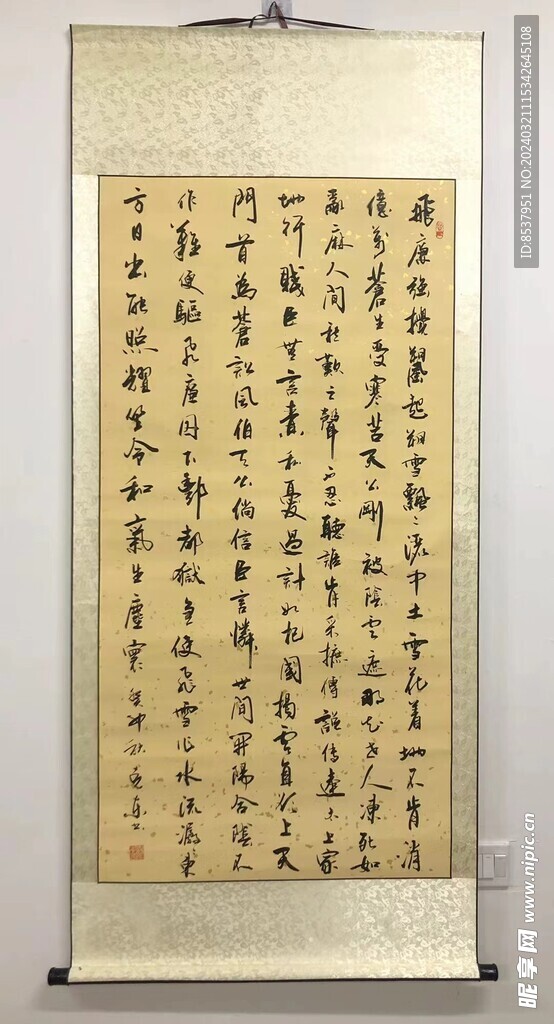 飛廉強攪朔風起朔雪飄〻灑中土雪花着地不肯消
億萬蒼生受寒苦天公剛被陰雲遮那知世人凍死如
亂麻人間愁歎之聲不忍聽誰肯采摭傳謠傳達太上家
地行賤臣無言責私憂過計如杞國揭雲直欲上天
門首為蒼訟風伯天公倘信臣言憐世間開陽合陰不
作難便驅飛廉囚下酆都獄急使飛雪作水流潺〻東
方日出能照耀坐令和氣生塵寰 癸卯秋
ID:8537951 NO:20240321115342645108
昵享网 www.nipic.cn